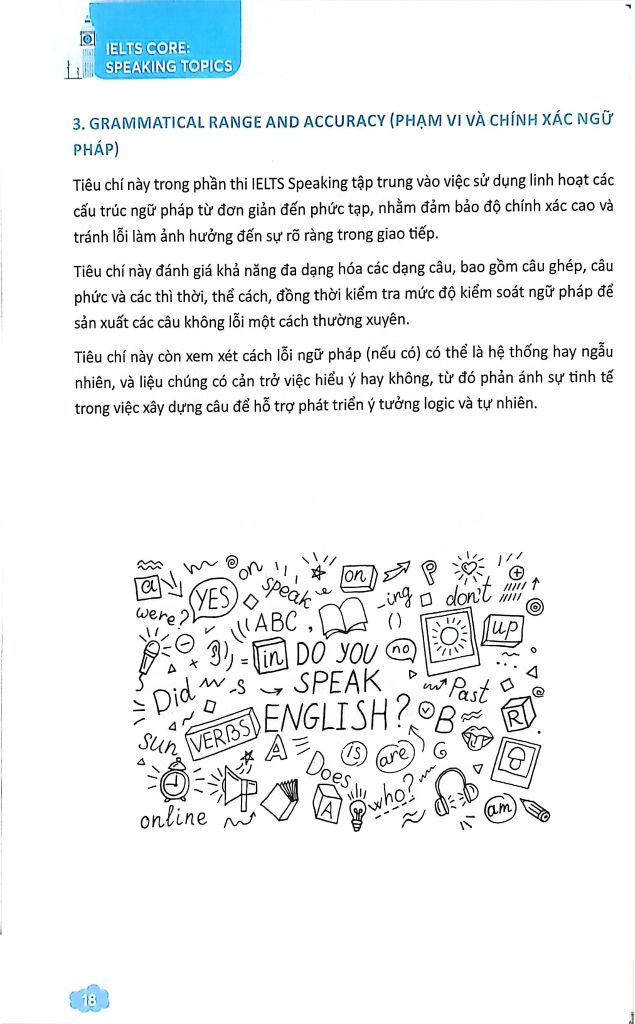 IELTS CORE:
SPEAKING TOPICS
3. GRAMMATICAL RANGE AND ACCURACY (PHẠM VI VÀ CHÍNH XÁC NGỮ
PHÁP)
Tiêu chí này trong phần thi IELTS Speaking tập trung vào việc sử dụng linh hoạt các
cấu trúc ngữ pháp từ đơn giản đến phức tạp, nhằm đảm bảo độ chính xác cao và
tránh lỗi làm ảnh hưởng đến sự rõ ràng trong giao tiếp.
Tiêu chí này đánh giá khả năng đa dạng hóa các dạng câu, bao gồm câu ghép, câu
phức và các thì thời, thể cách, đồng thời kiểm tra mức độ kiểm soát ngữ pháp để
sản xuất các câu không lỗi một cách thường xuyên.
Tiêu chí này còn xem xét cách lỗi ngữ pháp (nếu có) có thể là hệ thống hay ngẫu
nhiên, và liệu chúng có cản trở việc hiểu ý hay không, từ đó phản ánh sự tinh tế
trong việc xây dựng câu để hỗ trợ phát triển ý tưởng logic và tự nhiên.
a YES on speak on -ing P don't
were? ABC , () up
in DO YOU no
Did -s SPEAK Past
VERBS ENGLISH? B R
sun A Does is are G
A who? am
online
18